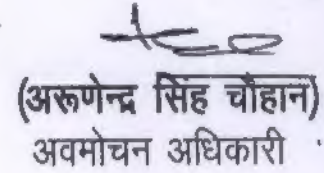 (अरूणेन्द्र सिंह चौहान)
अवमोचन अधिकारी